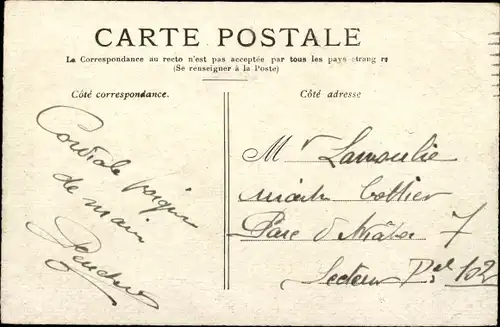 CARTE POSTALE
La Correspondance au recto n'est pas acceptée par tous les pays etrang rs
(Se renseigner à la Poste)
Côté correspondance.
Côté adresse
Cordiale poignée
de main
Mr Lamoulie
Parc d'
Secteur Pal 102